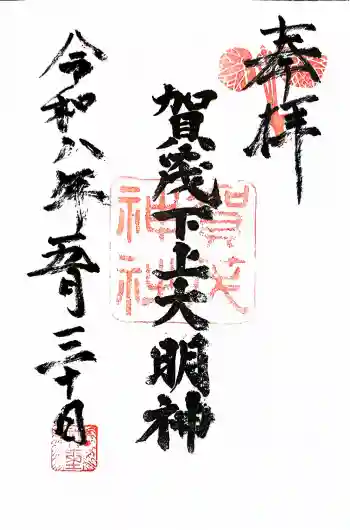 奉拝
賀茂下上大明神
賀茂
神社
令和八年五月三十日